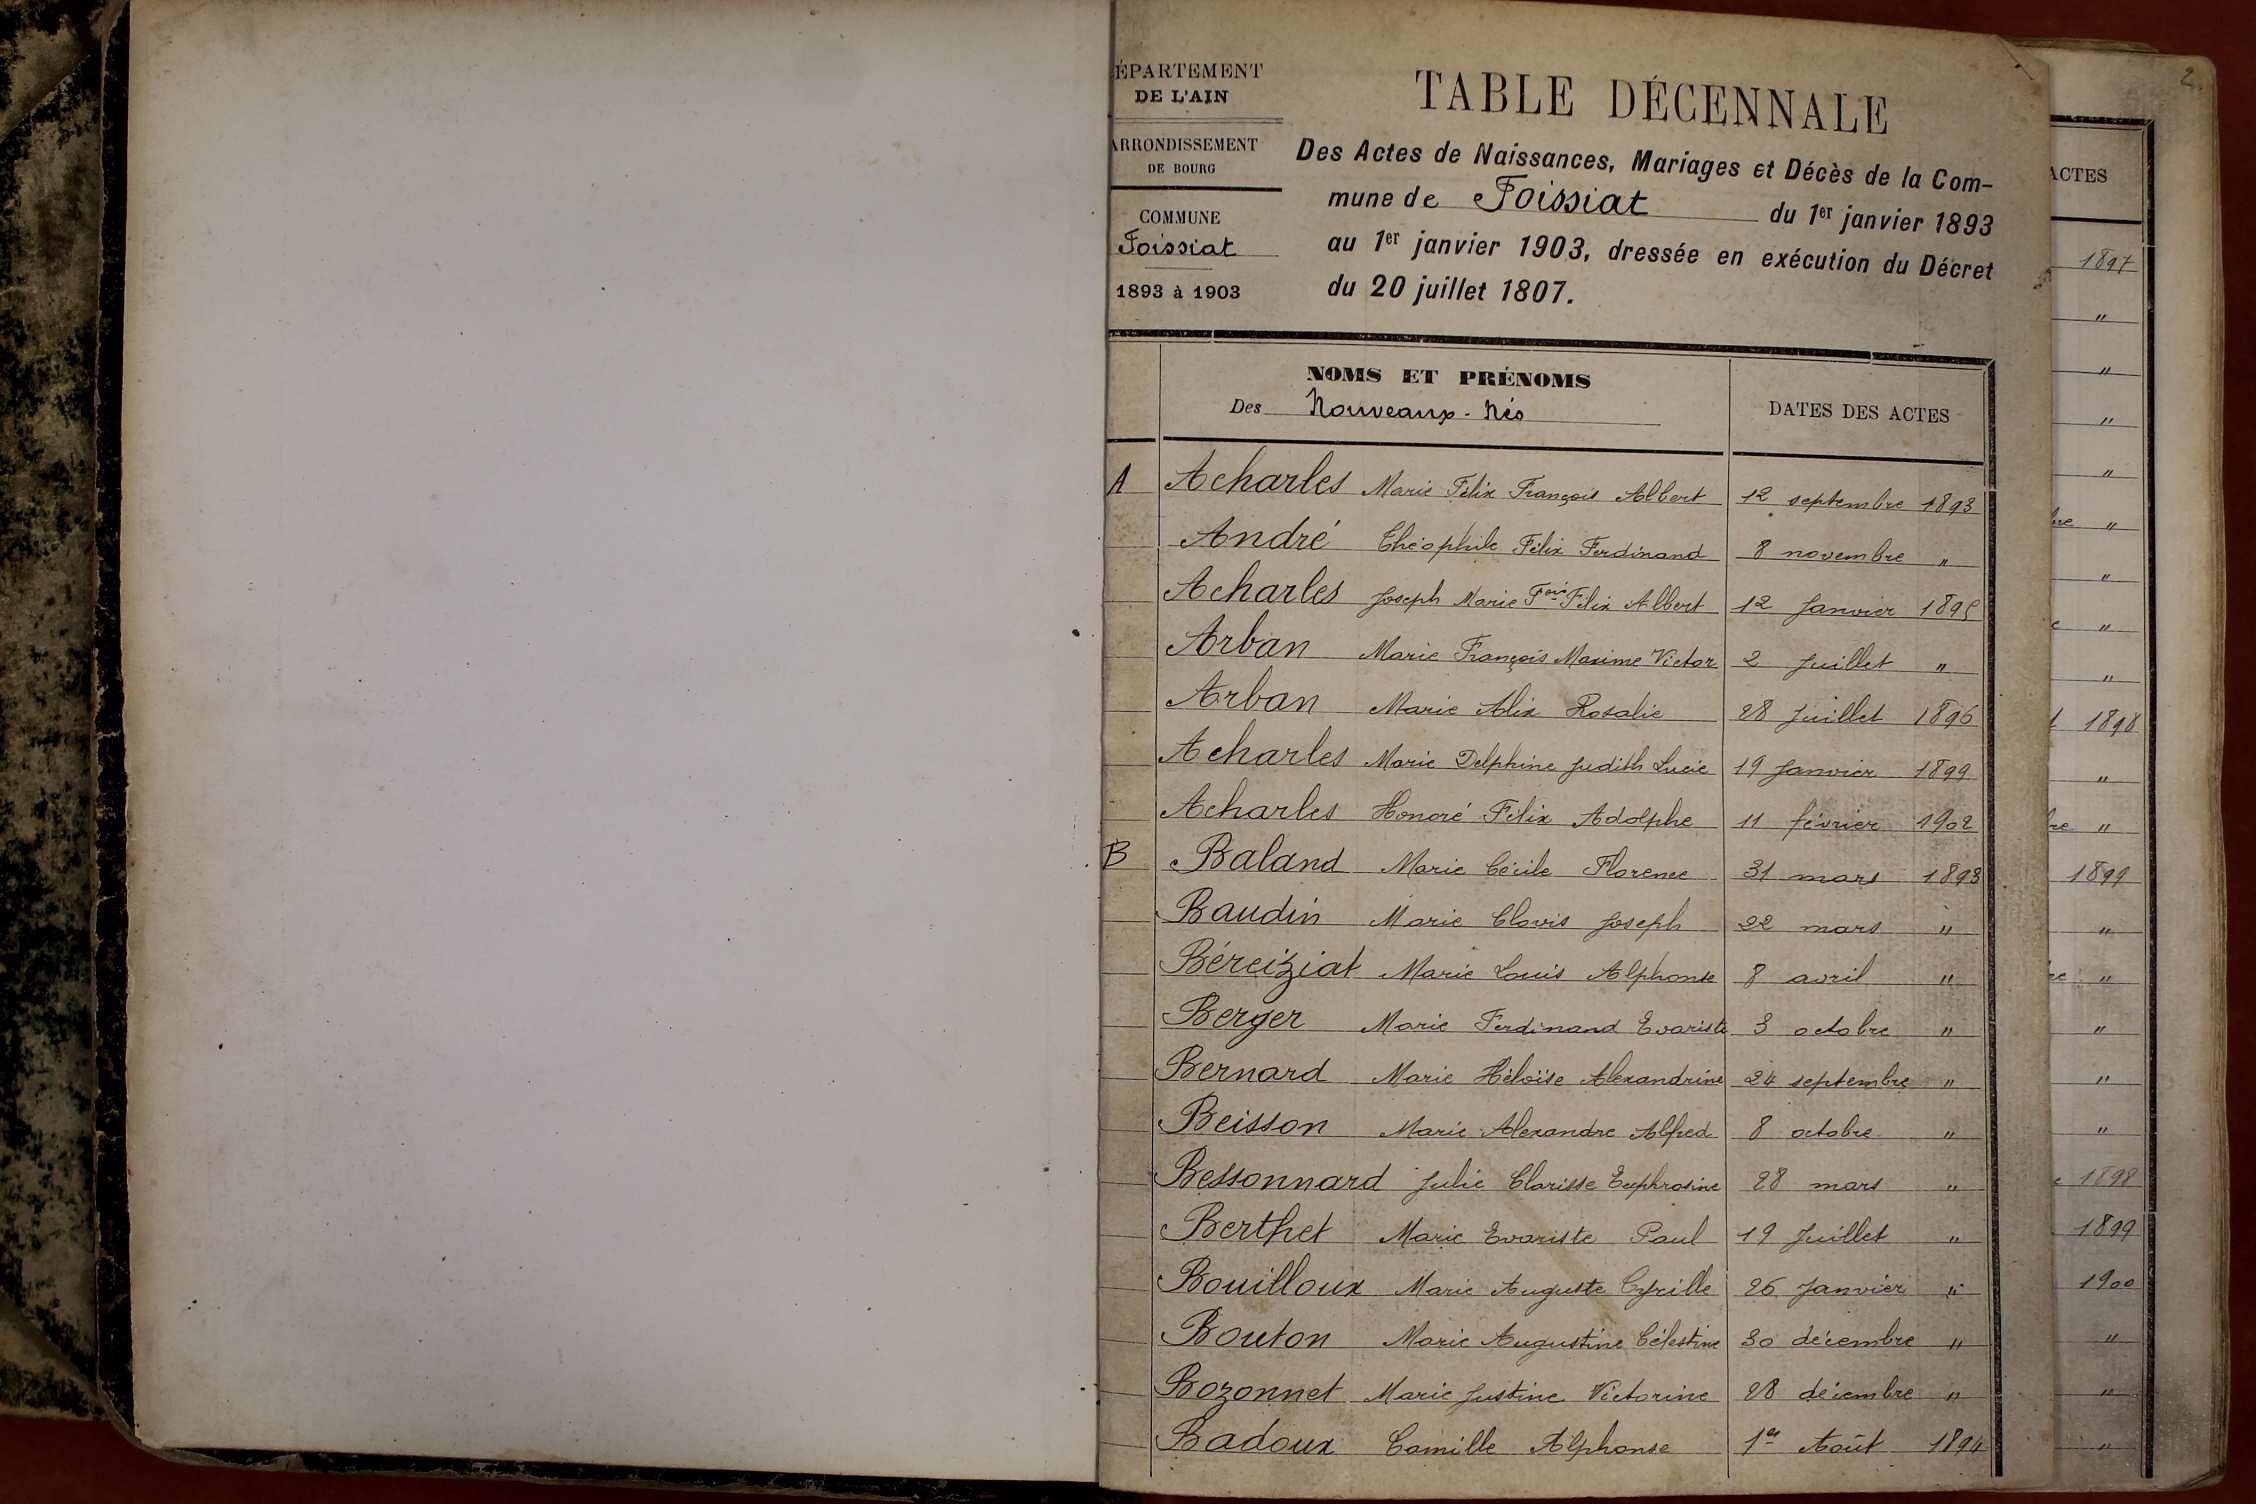 ÉPARTEMENT
DE L'AIN
ARRONDISSEMENT
DE BOURG
COMMUNE
Foissiat
1893 à 1903
TABLE DÉCENNALE
Des Actes de Naissances, Mariages et Décès de la Com-
mune de Foissiat du 1er janvier 1893
au 1er janvier 1903, dressée en exécution du Décret
du 20 juillet 1807.
NOMS ET PRÉNOMS
Des Nouveaux-Nés
DATES DES ACTES
A Acharles Marie Félix François Albert 12 septembre 1893
André Théophile Félix Ferdinand 8 novembre "
Acharles Joseph Marie Fois Félix Albert 12 Janvier 1895
Arban Marie François Maxime Victor 2 Juillet "
Arban Marie Alix Rosalie 28 Juillet 1896
Acharles Marie Delphine Judith Lucie 19 Janvier 1899
Acharles Honoré Félix Adolphe 11 février 1902
B Baland Marie Cécile Florence 31 mars 1893
Baudin Marie Clovis Joseph 22 mars "
Béreiziat Marie Louis Alphonse 8 avril "
Berger Marie Ferdinand Evariste 3 octobre "
Bernard Marie Héloïse Alexandrine 24 septembre "
Beisson Marie Alexandre Alfred 8 octobre "
Bessonnard Julie Clarisse Euphrosine 28 mars "
Berthet Marie Evariste Paul 19 Juillet "
Bouilloux Marie Auguste Cyrille 26 Janvier "
Bouton Marie Augustine Célestine 30 décembre "
Bozonnet Marie Justine Victorine 28 décembre "
Badoux Camille Alphonse 1er Août 1894
2
ACTES
1897
"
"
"
"
bre "
"
e "
"
t 1898
"
bre "
1899
"
re "
"
"
"
e 1898
1899
1900
"
"
"